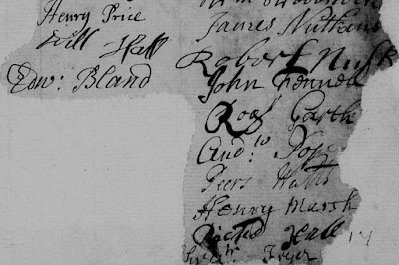 Henry Price
Will Hall
Edw: Bland
James Nuthins
Robert Nusk
John Fenned
Rog Garth
And:w Pope
Peers Watts
Henry Marsh
Richd Hall
Fryer